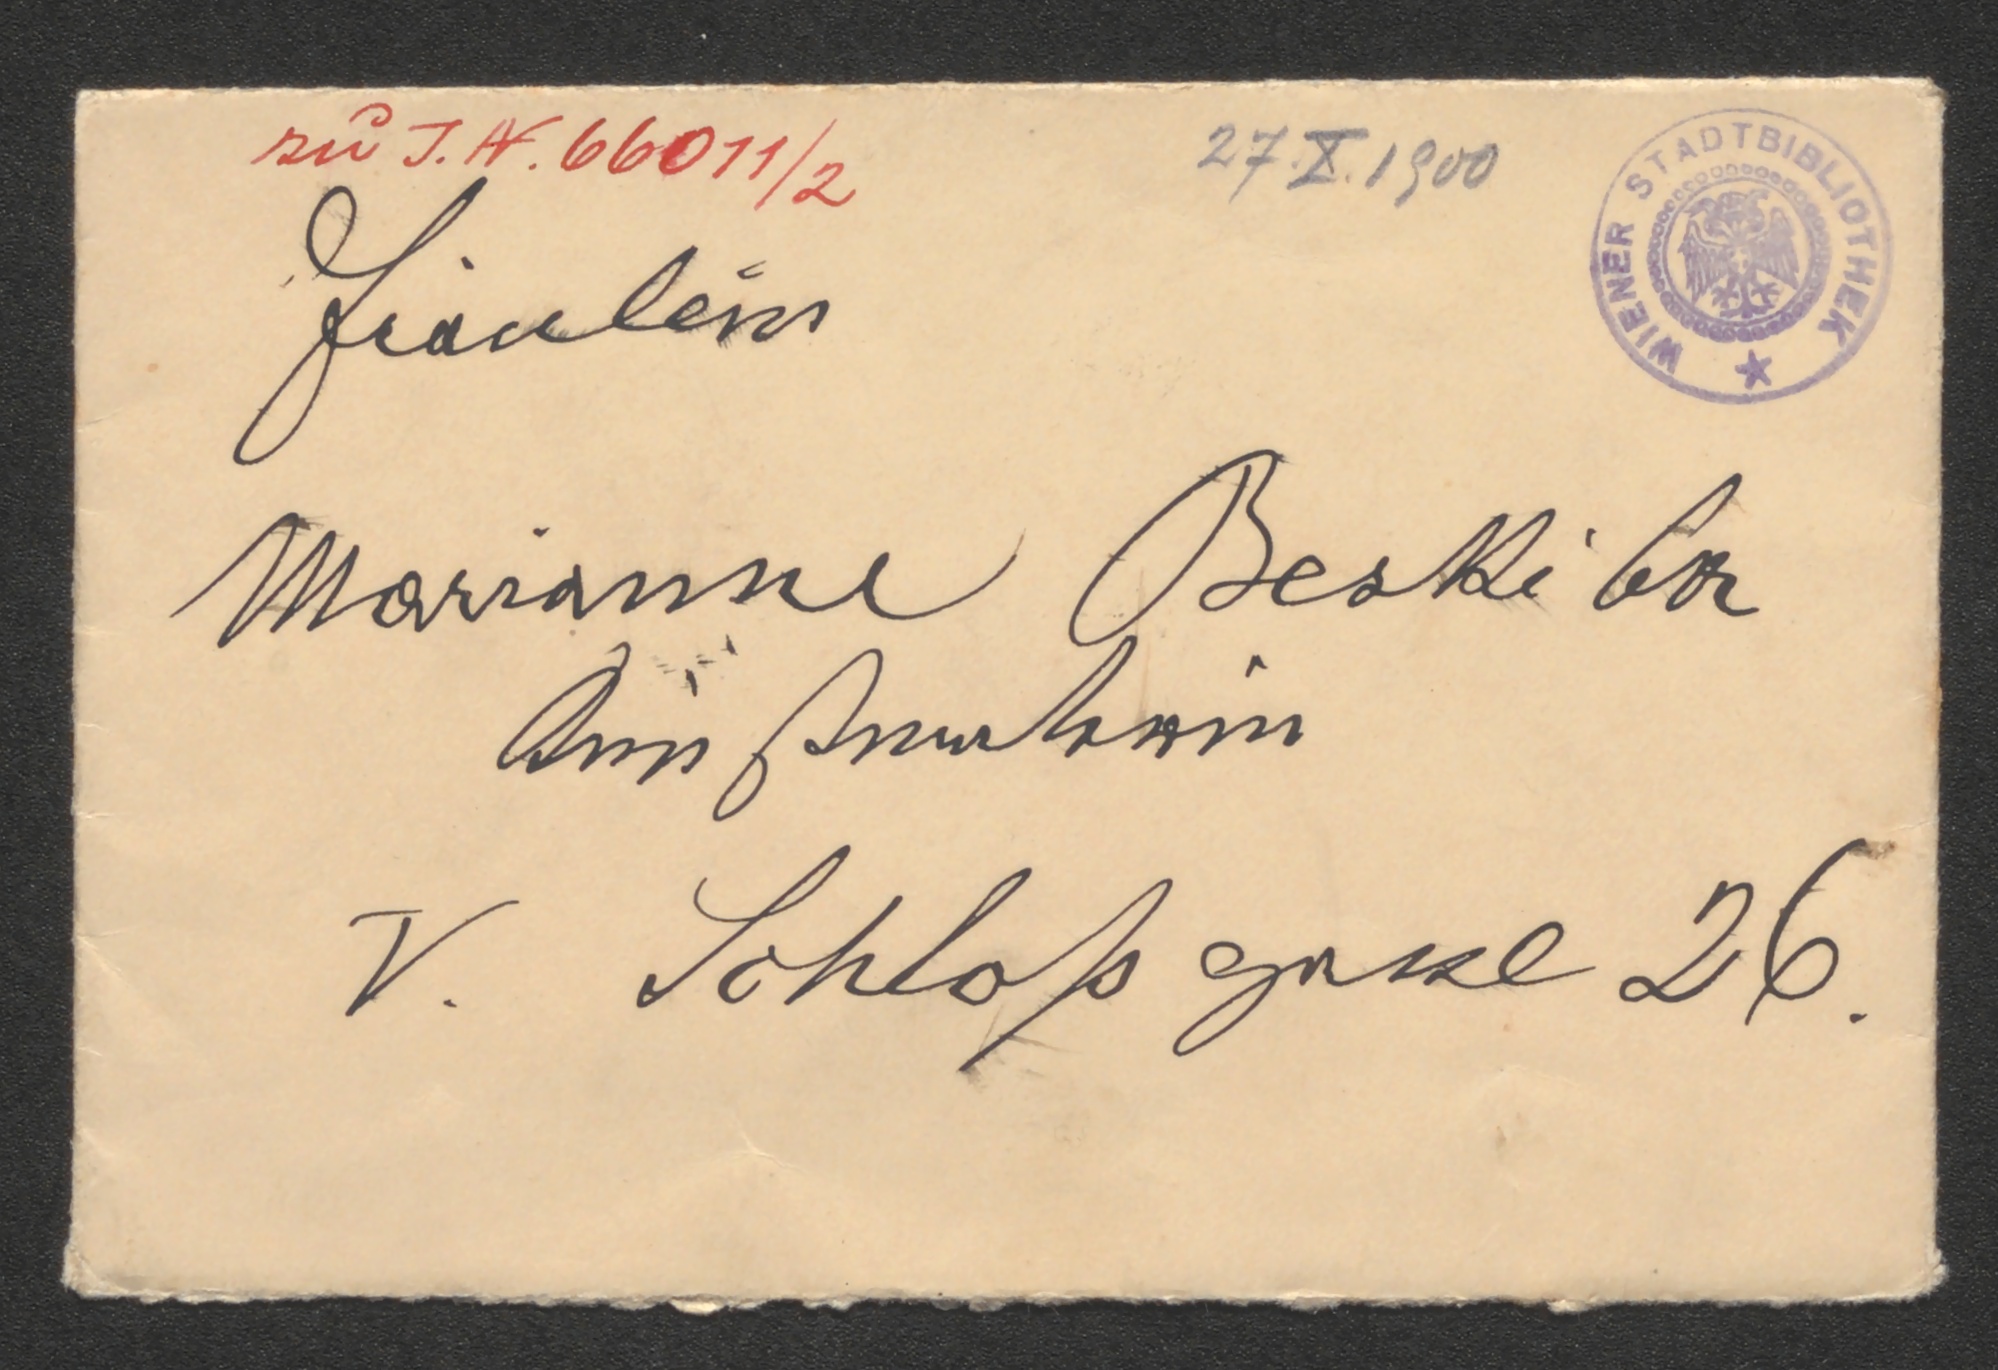 zu J.N. 66011/2
27.X.1900
WIENER STADTBIBLIOTHEK
Fräulein
Marianne Beskiba
V. Schloßgasse 26.